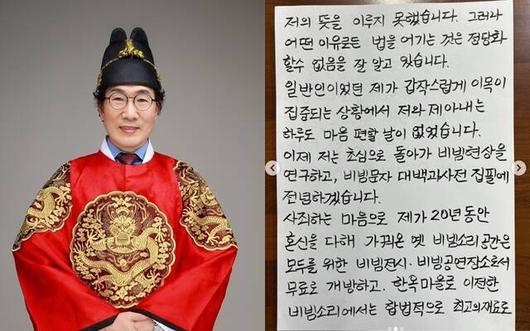 저의 뜻을 이루지 못했습니다. 그러나
어떤 이유로든 법을 어기는 것은 정당화
할수 없음을 잘 알고 있습니다.
일반인이었던 제가 갑작스럽게 이목이
집중되는 상황에서 저와 제아내는
하루도 마음 편할 날이 없었습니다.
이제 저는 초심으로 돌아가 비빔현상을
연구하고, 비빔문자 대백과사전 집필에
전념하겠습니다.
사죄하는 마음으로 제가 20년 동안
혼신을 다해 가꿔온 옛 비빔소리 공간은
모두를 위한 비빔전시·비빔공연장소로서
무료로 개방하고, 한옥마을로 이전한
비빔소리에서는 합법적으로 최고의재료로